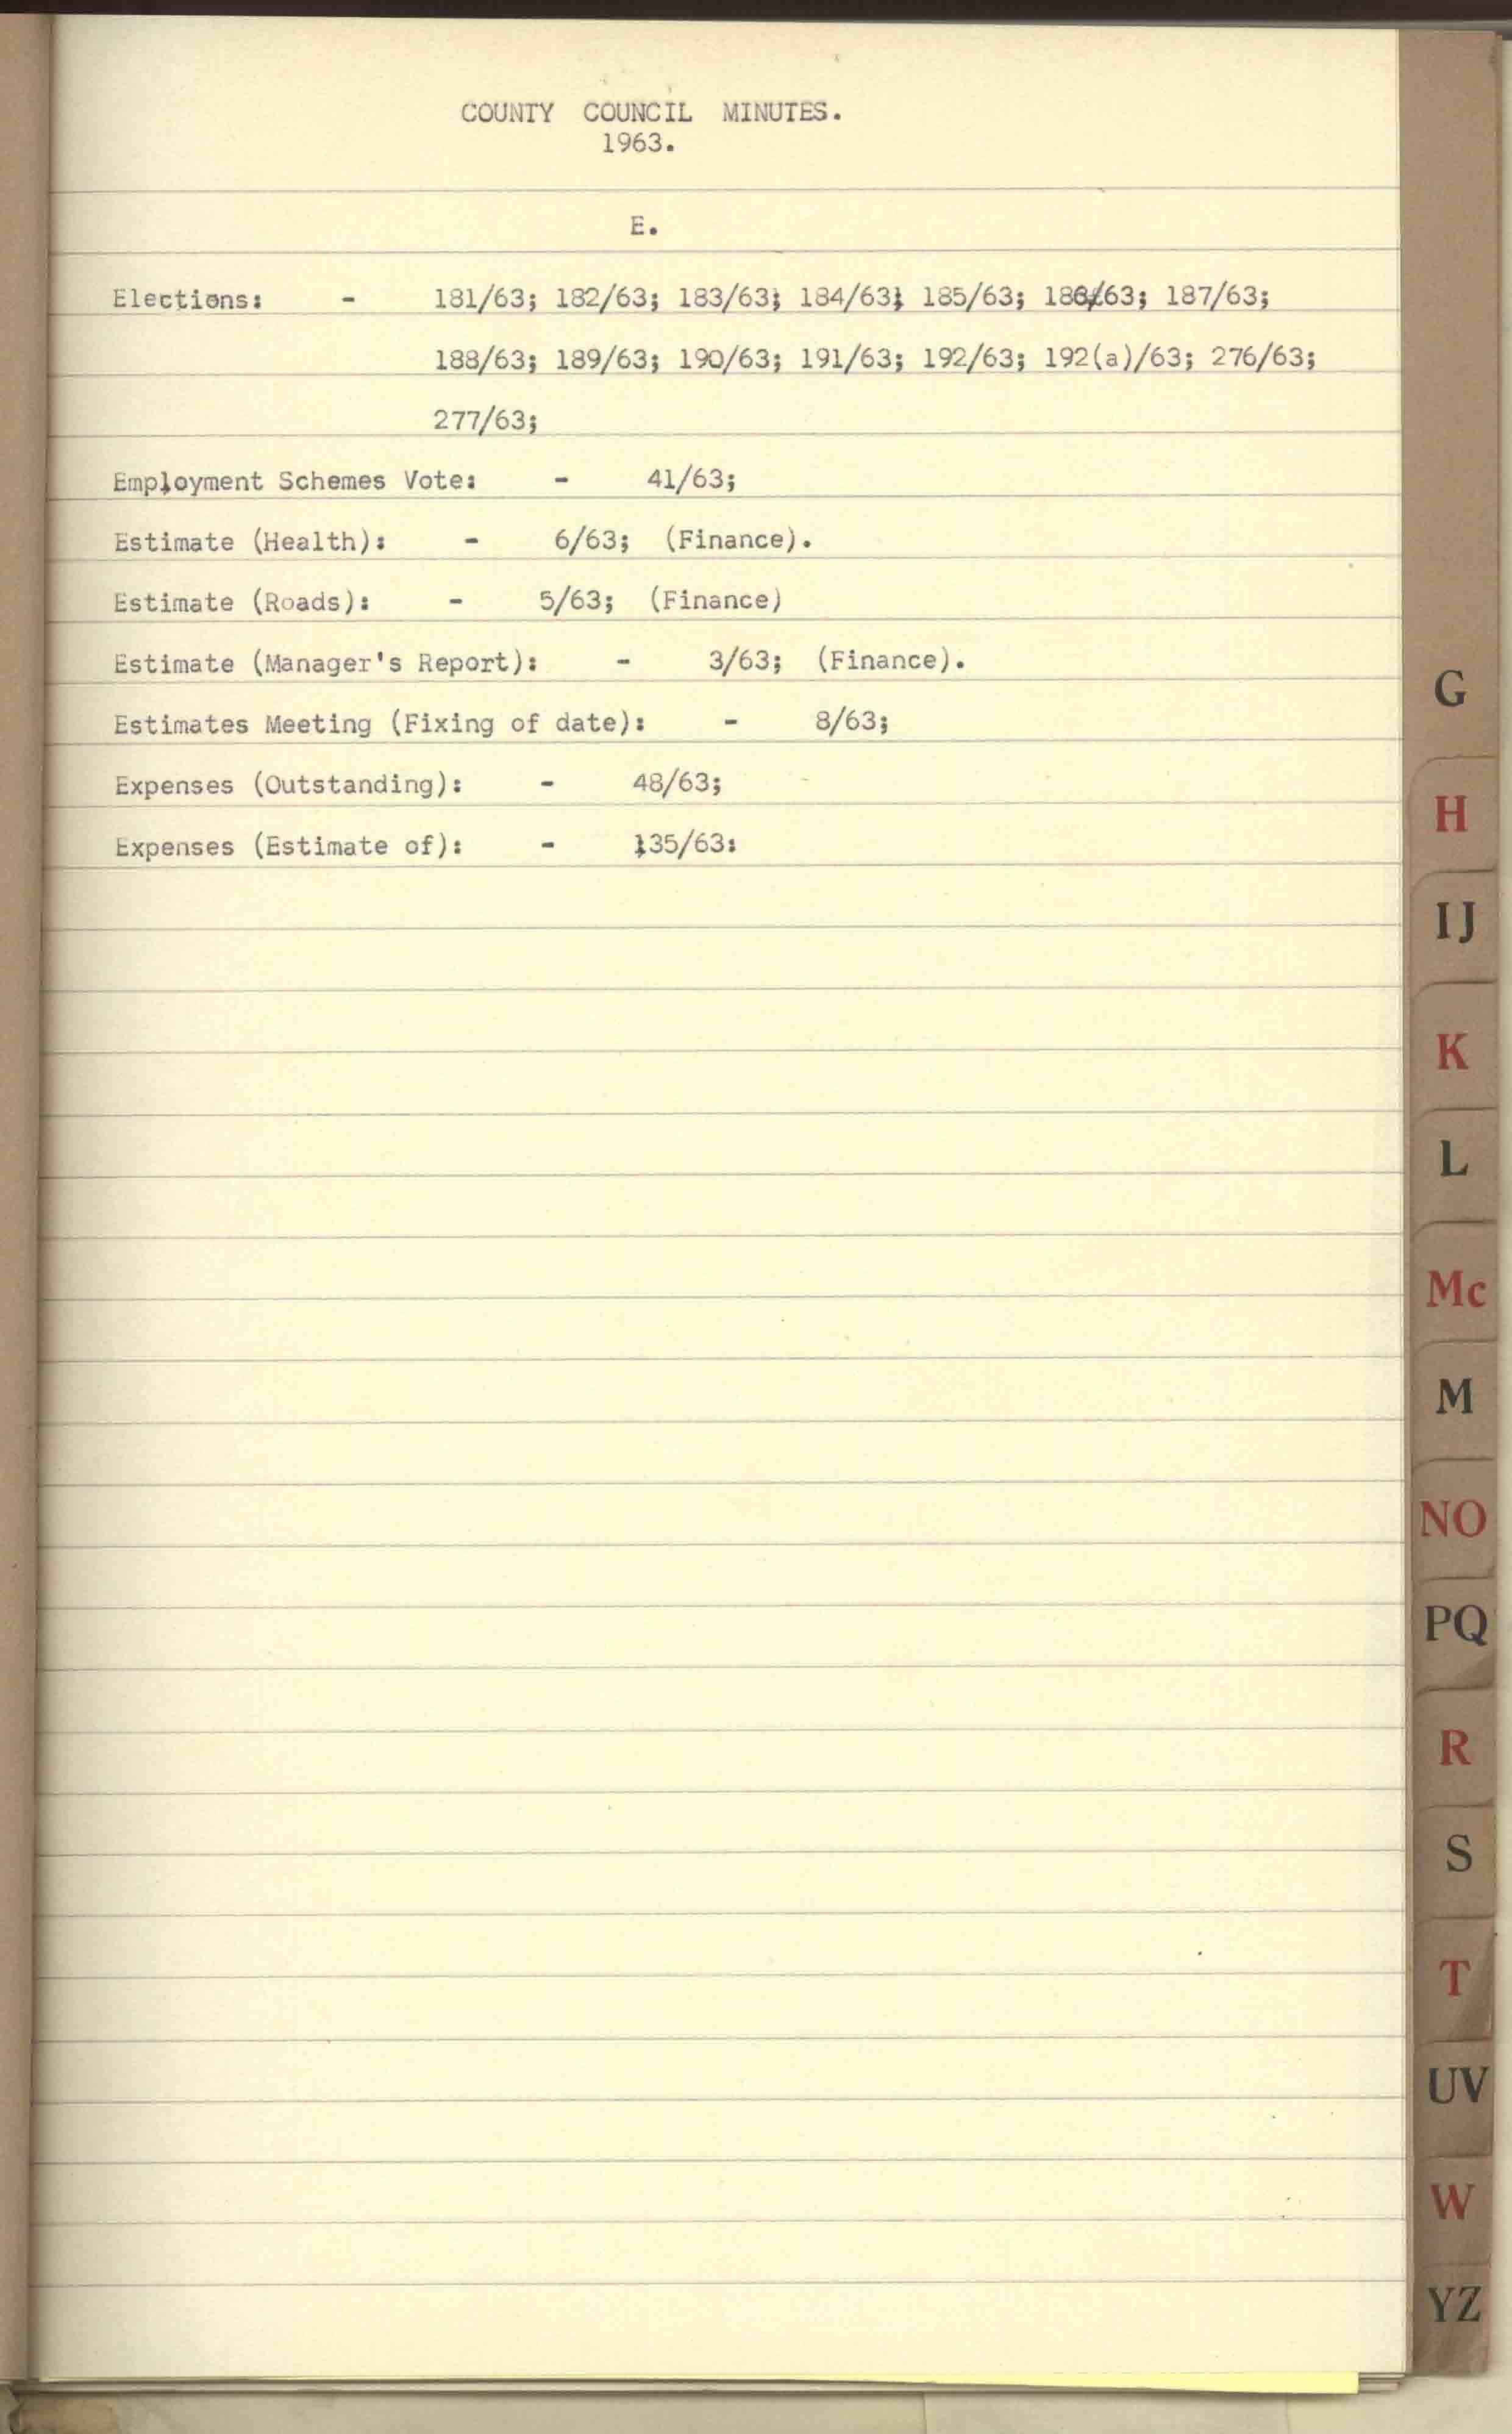 COUNTY COUNCIL MINUTES.
1963.
E.
Elections: - 181/63; 182/63; 183/63; 184/63; 185/63; 186/63; 187/63;
188/63; 189/63; 190/63; 191/63; 192/63; 192(a)/63; 276/63;
277/63;
Employment Schemes Vote: - 41/63;
Estimate (Health): - 6/63; (Finance).
Estimate (Roads): - 5/63; (Finance)
Estimate (Manager's Report): - 3/63; (Finance).
Estimates Meeting (Fixing of date): - 8/63;
Expenses (Outstanding): - 48/63;
Expenses (Estimate of): - 135/63:
G
H
IJ
K
L
Mc
M
NO
PQ
R
S
T
UV
W
YZ